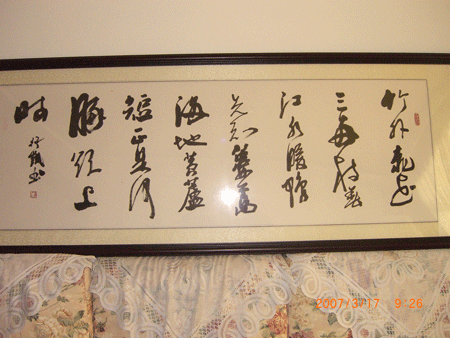 竹外桃花
三两枝春
江水暖鸭
先知蒌蒿
满地芽蘆
短正是河
豚欲上
時
2007/3/17 9:26